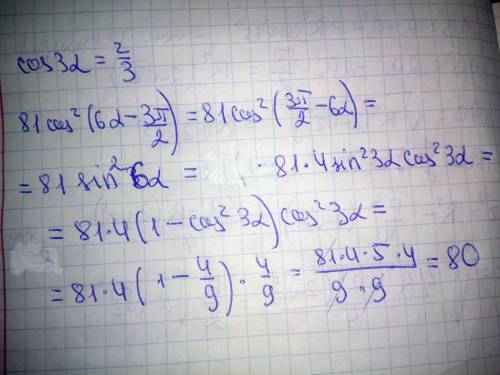 cos3α = 2/3
81cos²(6α − 3π/2) = 81cos²(3π/2 − 6α) =
= 81 sin²6α = · 81·4sin²3α cos²3α =
= 81·4(1 − cos²3α)cos²3α =
= 81·4(1 − 4/9)·4/9 = 81·4·5·4/9·9 = 80